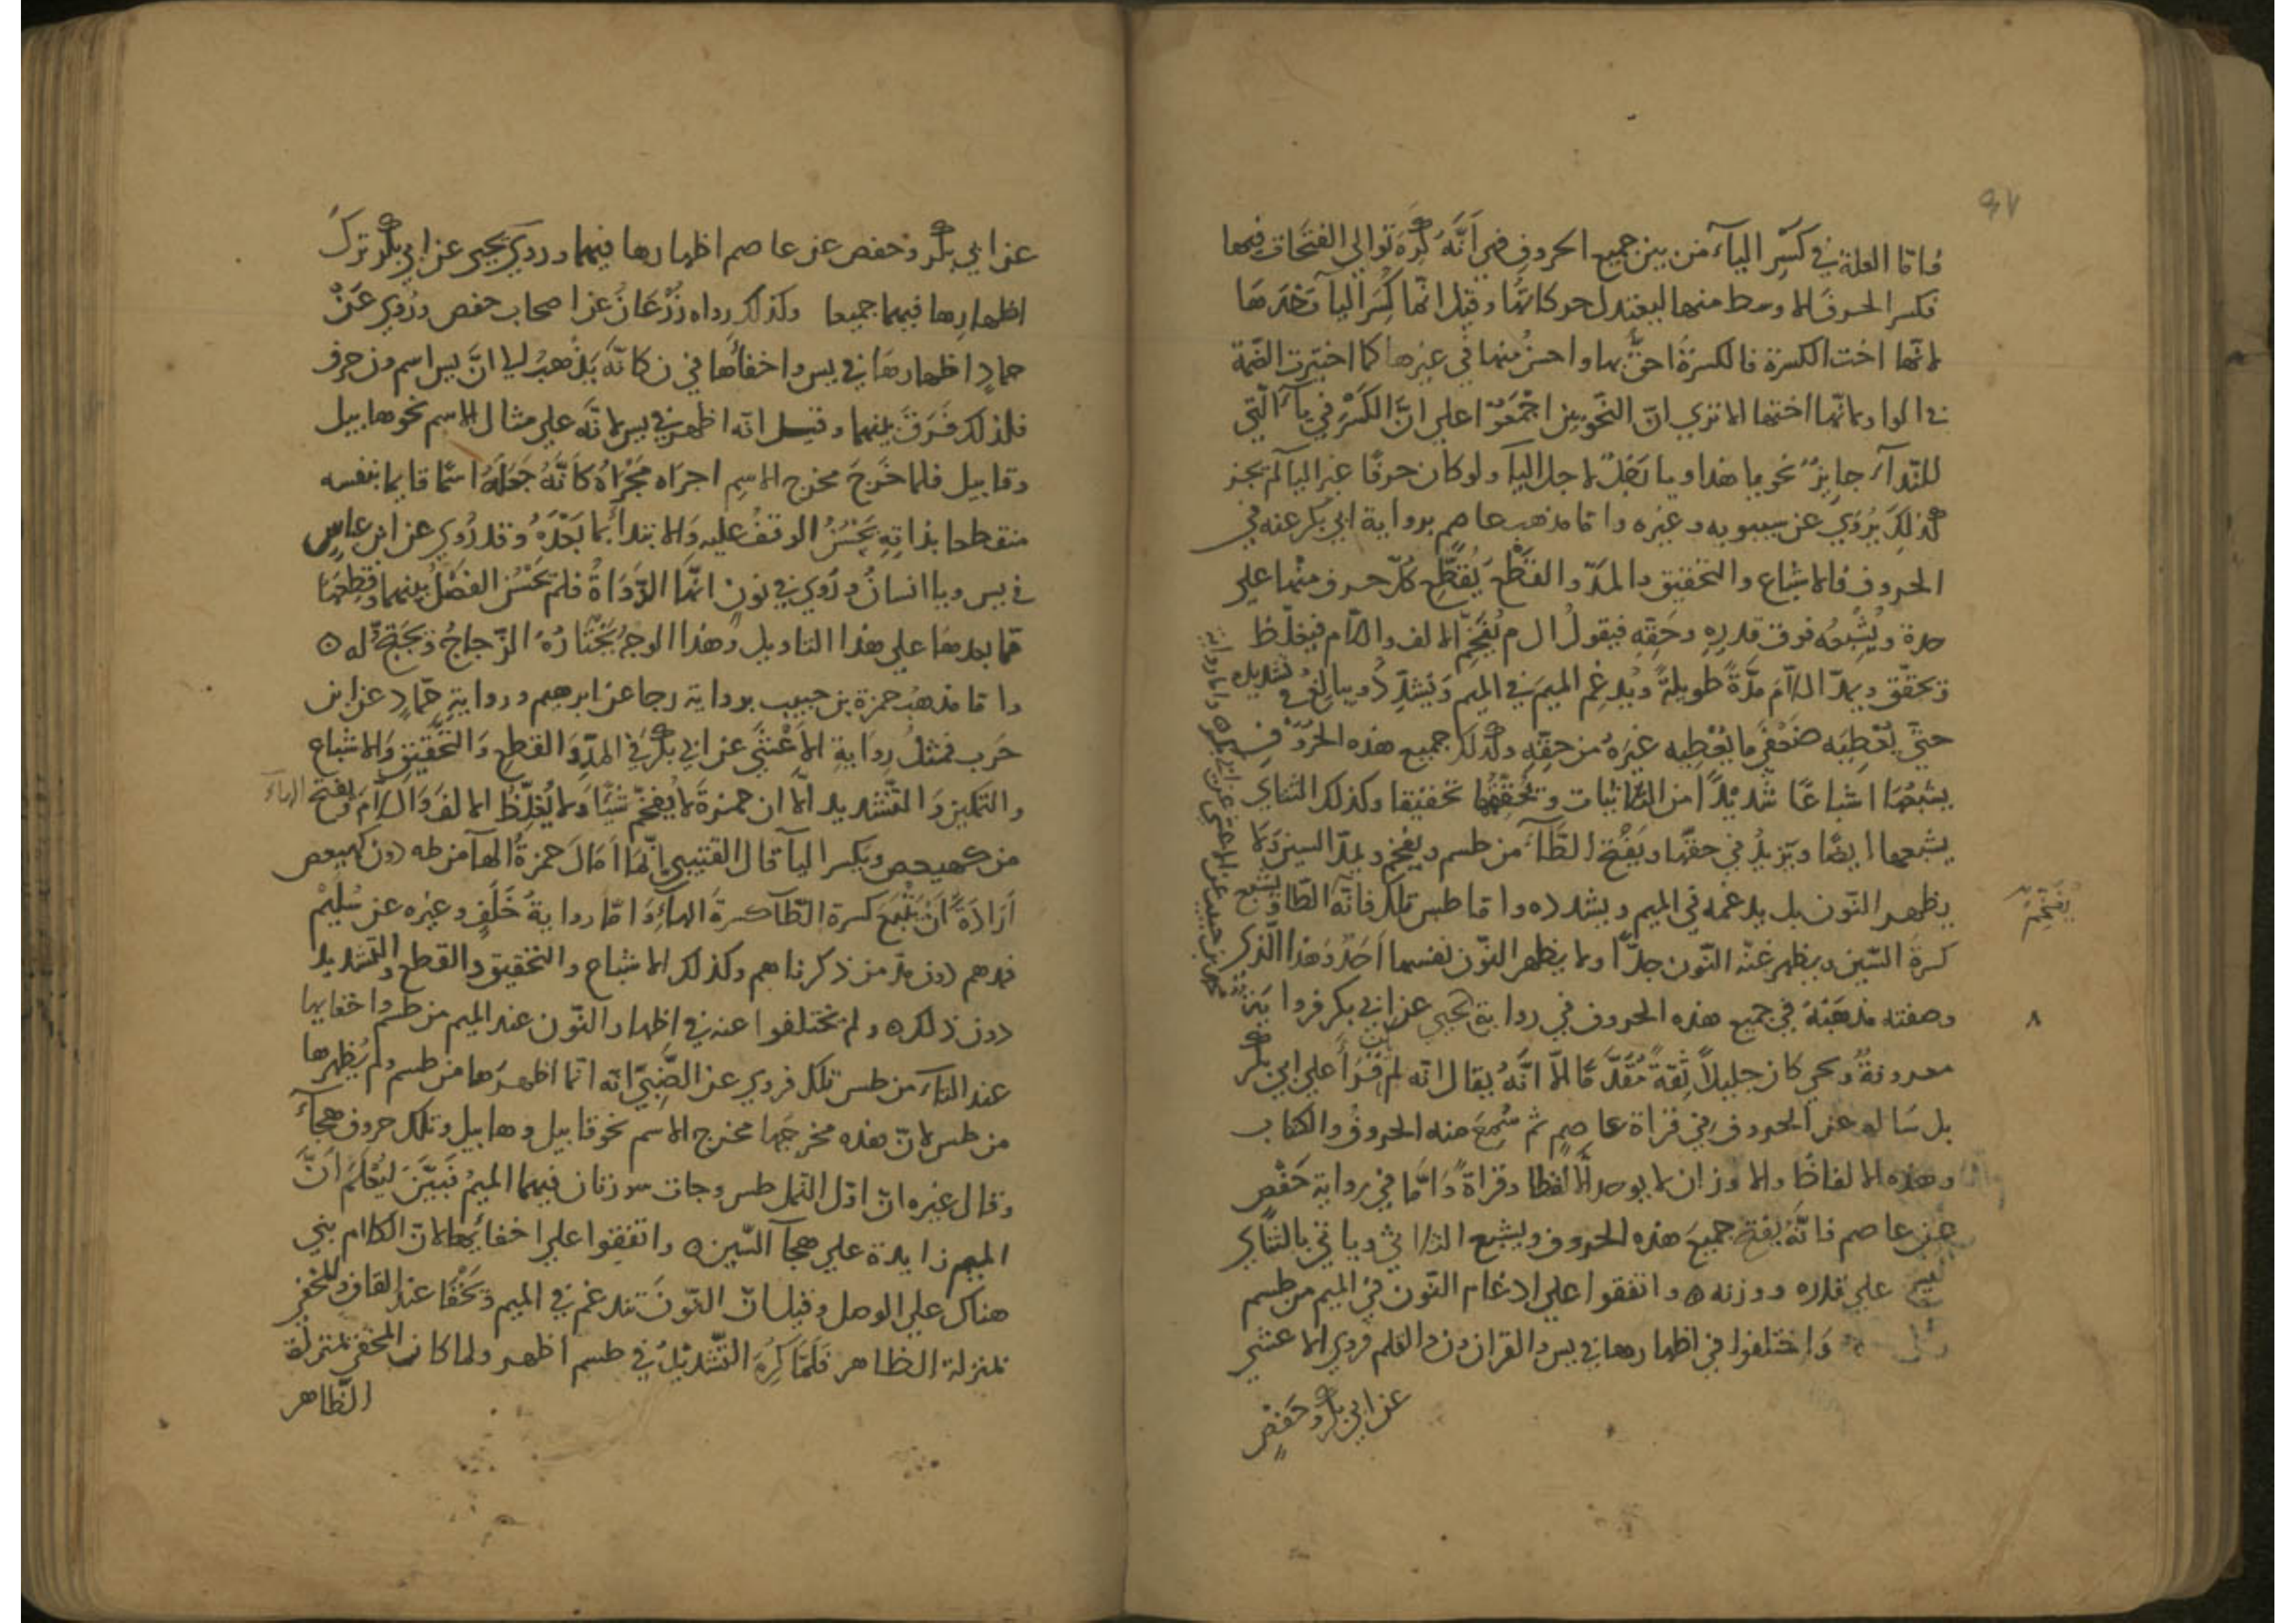 فاما العلة في كَسْرِ الياۤء من بين جميع الحروف فهي اَنَّهُ كُرِهَ توالي الفتحات فيها
فكسر الحرف الاوسط منها ليعتدل حركاتها وقيل انما كُسِرَ اليا وَحْدَهَا
لانها اخت الكسرة فالكسرةُ احقُّ بها واحسنُ منها في غيرها كما اختيرت الضمة
في الواو لانها اختها الا تري انّ النحويين اجْمَعُوْا علي انَّ الكَسْرَ في يا الّتي
للنّدآء جايزٌ نحو يا هذا ويا رَجُلُ لاجل اليا ولو كان حرفًا غير اليا لم يجز
كذلِكَ يُرْوَي عن سيبويه وغيره واما مذهب عاصم برواية ابي بكر عنه في
الحروف فالاشباع والتحقيق والمَدّ والقَطْع يُقَطِّعُ كُلّ حرف منها علي
حدة ويُشْبِعُه فوق قدره وحَقِّهِ فيقولُ ال م يُفَخِّمُ الالف واللّام فيغلّظ
ويحقّق ويمدّ اللّامَ مَدّةً طويلةً ويُدْغِم الميمَ في الميم ويَشدِّدُ ويبالغُ في تشديده
حتّي يُعْطِيَه ضعْفَي ما يُعْطِيه غيرَهُ من حقّه وكذلك جميع هذه الحروف
يشبعُهَا اشباعًا شَدِيْدًا من الثّانيات ويُحَقِّقُهَا تحقيقا وكذلك الثنائي
يشبعها ايضًا ويَزيدُ في حقّها ويَفْتح الطَّاۤء من طسم ويفخم ويمدّ السين ولا
يظهر النّون بل يدغمه في الميم ويشدده واما طس تلك فانّه الطّا ويشبع
كسرة السّين ويظهر غنّة النّون جدًّا ولا يظهر النّون نفسها اَحَدٌ وَهذا الّذي
وصفته مذهَبُهُ في جميع هذه الحروف في رواية يحيي عن ابي بكر
معروفةٌ ويحيي كان جليلًا ثِقةً مُقَدَّمًا الّا انَّهُ يقال انه لم يَقْرَأ علي ابي بكر
بل سَاله عن الحروف في قراة عاصمٍ ثم سُمِعَ منه الحروفُ والكتاب
وهذه الالفاظ والاوزان لا يوجد الّا لفظا وقراةً وَامَّا في رواية حَفْصٍ
عن عاصم فانَّهُ يفتح جميعَ هذه الحروف ويشبع الثلاثي وياتي بالثنائي
علي قدره ووزنه ۞ واتفقوا علي ادغام النّون في الميم من طسم
وَاختلفوا في اظهارها في يس والقران ون والقلم فروي الاعشي
عن ابي بكر وحَفْصٍ
يُفَخّمُ
٨
عن ابي بكر وحفص عن عاصم اظهارها فيهما وروي يحيي عن ابي بكر تركَ
اظهارها فيهما جميعا وكذلك رواه زَرْعَانُ عن اصحاب حفص ورُوِي عَنْ
حمادٍ اظهارهَا في يس واخفاؤها في ن كانّه يَذْهبُ الي انَّ يس اسم ون حرف
فلذلك فَرَقَ بينهما وقيل انه اظهر في يس لانَّه علي مثال الاسم نحو هابيل
وقابيل فلما خَرَجَ مخرج الاسمِ اجرَاه مَجْرَاهُ كَانَّهُ جَعَلَهُ اسمًا قايما بنفسه
منقطعا بذاتِهِ يَحْسُنُ الوقفُ عليه وَالابتدأ بما بَعْدَهُ وقد رُوي عن ابن عباسٍ
في يس ويا انسانُ ورُوي في نون انّها الدَّوَاةُ فلم يَحْسُن الفَصْلُ بينهما وقطعهَا
مما بعدهَا علي هذا التاويل وهذا الوجهُ يَخْتَارُهُ الزّجاجُ ويَحتجّ له ۞
واما مذهبُ حمزة بن حبيب برواية رجا عن ابرهيم ورواية حمّادٍ عن ابن
حَرب فمثلُ روايةِ الاَعْشَي عن ابي بكر في المدّ وَالقطعِ وَالتَّحْقيق والاشباع
والتمكين وَالتّشديد الّا ان حمزةَ لا يُفخّم شيًا ولا يُغلِّظُ الالفَ وَاللامَ ويفتح الهاۤء
من كهيعص ويكسر اليا قال القتيبي انّما اَمَالَ حمزةُ الهاۤ من طه دون كهيعص
اَرَادَةً اَنْ يتْبَعَ كسرة الطّا كسرةَ الهاۤءِ وَامّا روايةُ خَلَفٍ وغيره عن سُلَيْم
فمدهم دون مدّ من ذكرناهم وكذلك الاشباع والتحقيق والقطع والتّشديد
دون ذلك ۞ ولم يختلفوا عنه في اظهار النّون عند الميم من طسم واخفايها
عند التاۤء من طس تلك فروي عن الضَّبِيّ انه انما اظهرَها من طسم ولم يُظهرها
من طس لانّ هذه مخرجُها مخرج الاسم نحو قابيل وهابيل وتلك حروف هجاۤء
وقال غيره انّ اوّل النّمل طس وجات سورتان فيهما الميمُ فَبَيَّنَ ليُعْلَمَ اَنَّ
الميم زايدة علي هجآ السّين ۞ واتفقوا علي اخفائها لانّ الكلام بني
هناك علي الوصل وقيل انّ النّونَ تدغم في الميم ويَخْفَا عند القاف والمخفي
بمنزلة الظاهر فلمّا كرِهَ التّشديدُ في طسم اظهر ولما كان المخفي بمنزلة
الظّاهر